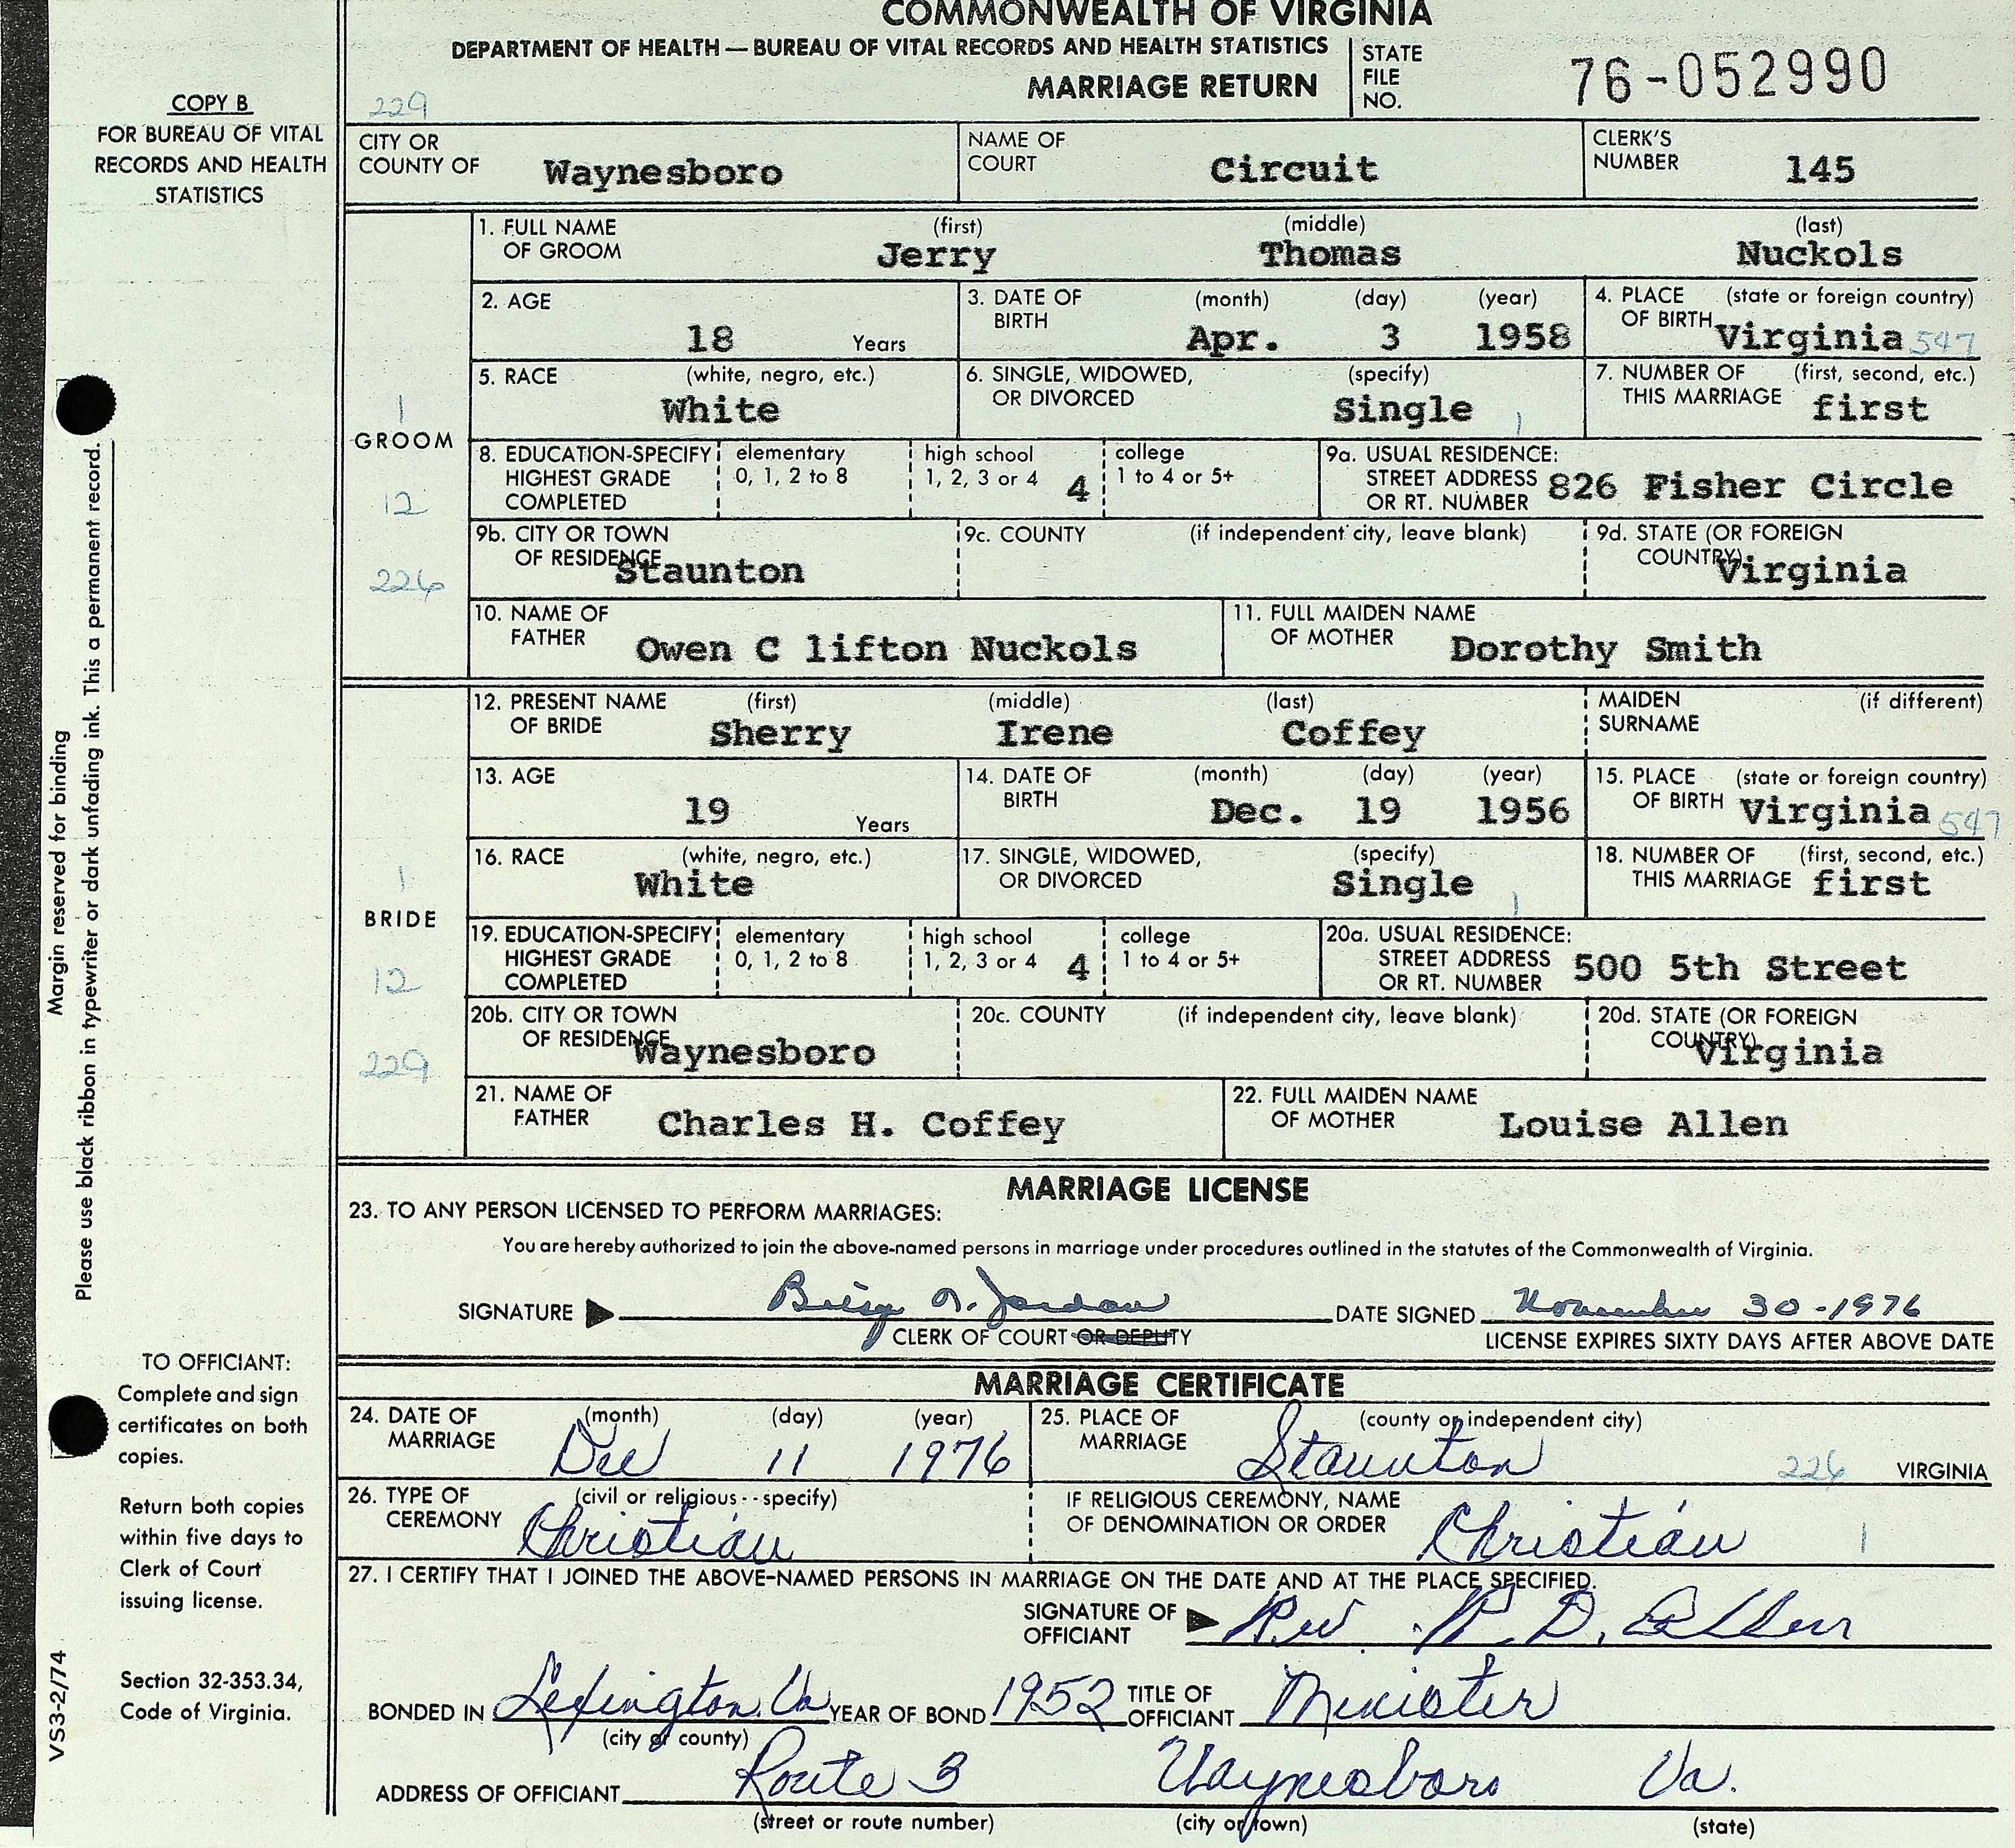 COMMONWEALTH OF VIRGINIA
DEPARTMENT OF HEALTH — BUREAU OF VITAL RECORDS AND HEALTH STATISTICS
MARRIAGE RETURN
STATE FILE NO. 76-052990
COPY B
FOR BUREAU OF VITAL
RECORDS AND HEALTH
STATISTICS
229
CITY OR COUNTY OF Waynesboro NAME OF COURT Circuit CLERK'S NUMBER 145
GROOM
1
12
226
1. FULL NAME OF GROOM (first) Jerry (middle) Thomas (last) Nuckols
2. AGE 18 Years 3. DATE OF BIRTH (month) Apr. (day) 3 (year) 1958 4. PLACE OF BIRTH (state or foreign country) Virginia 547
5. RACE (white, negro, etc.) White 6. SINGLE, WIDOWED, OR DIVORCED (specify) Single 1 7. NUMBER OF THIS MARRIAGE (first, second, etc.) first
8. EDUCATION-SPECIFY HIGHEST GRADE COMPLETED elementary 0, 1, 2 to 8 high school 1, 2, 3 or 4 4 college 1 to 4 or 5+ 9a. USUAL RESIDENCE: STREET ADDRESS OR RT. NUMBER 826 Fisher Circle
9b. CITY OR TOWN OF RESIDENCE Staunton 9c. COUNTY (if independent city, leave blank) 9d. STATE (OR FOREIGN COUNTRY) Virginia
10. NAME OF FATHER Owen C lifton Nuckols 11. FULL MAIDEN NAME OF MOTHER Dorothy Smith
BRIDE
1
12
229
12. PRESENT NAME OF BRIDE (first) Sherry (middle) Irene (last) Coffey MAIDEN SURNAME (if different)
13. AGE 19 Years 14. DATE OF BIRTH (month) Dec. (day) 19 (year) 1956 15. PLACE OF BIRTH (state or foreign country) Virginia 547
16. RACE (white, negro, etc.) White 17. SINGLE, WIDOWED, OR DIVORCED (specify) Single 1 18. NUMBER OF THIS MARRIAGE (first, second, etc.) first
19. EDUCATION-SPECIFY HIGHEST GRADE COMPLETED elementary 0, 1, 2 to 8 high school 1, 2, 3 or 4 4 college 1 to 4 or 5+ 20a. USUAL RESIDENCE: STREET ADDRESS OR RT. NUMBER 500 5th Street
20b. CITY OR TOWN OF RESIDENCE Waynesboro 20c. COUNTY (if independent city, leave blank) 20d. STATE (OR FOREIGN COUNTRY) Virginia
21. NAME OF FATHER Charles H. Coffey 22. FULL MAIDEN NAME OF MOTHER Louise Allen
MARRIAGE LICENSE
23. TO ANY PERSON LICENSED TO PERFORM MARRIAGES:
You are hereby authorized to join the above-named persons in marriage under procedures outlined in the statutes of the Commonwealth of Virginia.
SIGNATURE Jordan DATE SIGNED November 30-1976
CLERK OF COURT OR DEPUTY LICENSE EXPIRES SIXTY DAYS AFTER ABOVE DATE
MARRIAGE CERTIFICATE
24. DATE OF MARRIAGE (month) Dec (day) 11 (year) 1976 25. PLACE OF MARRIAGE (county or independent city) Staunton 226 VIRGINIA
26. TYPE OF CEREMONY (civil or religious--specify) Christian IF RELIGIOUS CEREMONY, NAME OF DENOMINATION OR ORDER Christian 1
27. I CERTIFY THAT I JOINED THE ABOVE-NAMED PERSONS IN MARRIAGE ON THE DATE AND AT THE PLACE SPECIFIED.
SIGNATURE OF OFFICIANT Rev. D. Allen
BONDED IN Lexington, Va YEAR OF BOND 1952 TITLE OF OFFICIANT Minister
(city or county)
ADDRESS OF OFFICIANT Route 3 Waynesboro Va.
(street or route number) (city or town) (state)
Margin reserved for binding
Please use black ribbon in typewriter or dark unfading ink. This a permanent record.
TO OFFICIANT:
Complete and sign
certificates on both
copies.
Return both copies
within five days to
Clerk of Court
issuing license.
Section 32-353.34,
Code of Virginia.
VS3-2/74